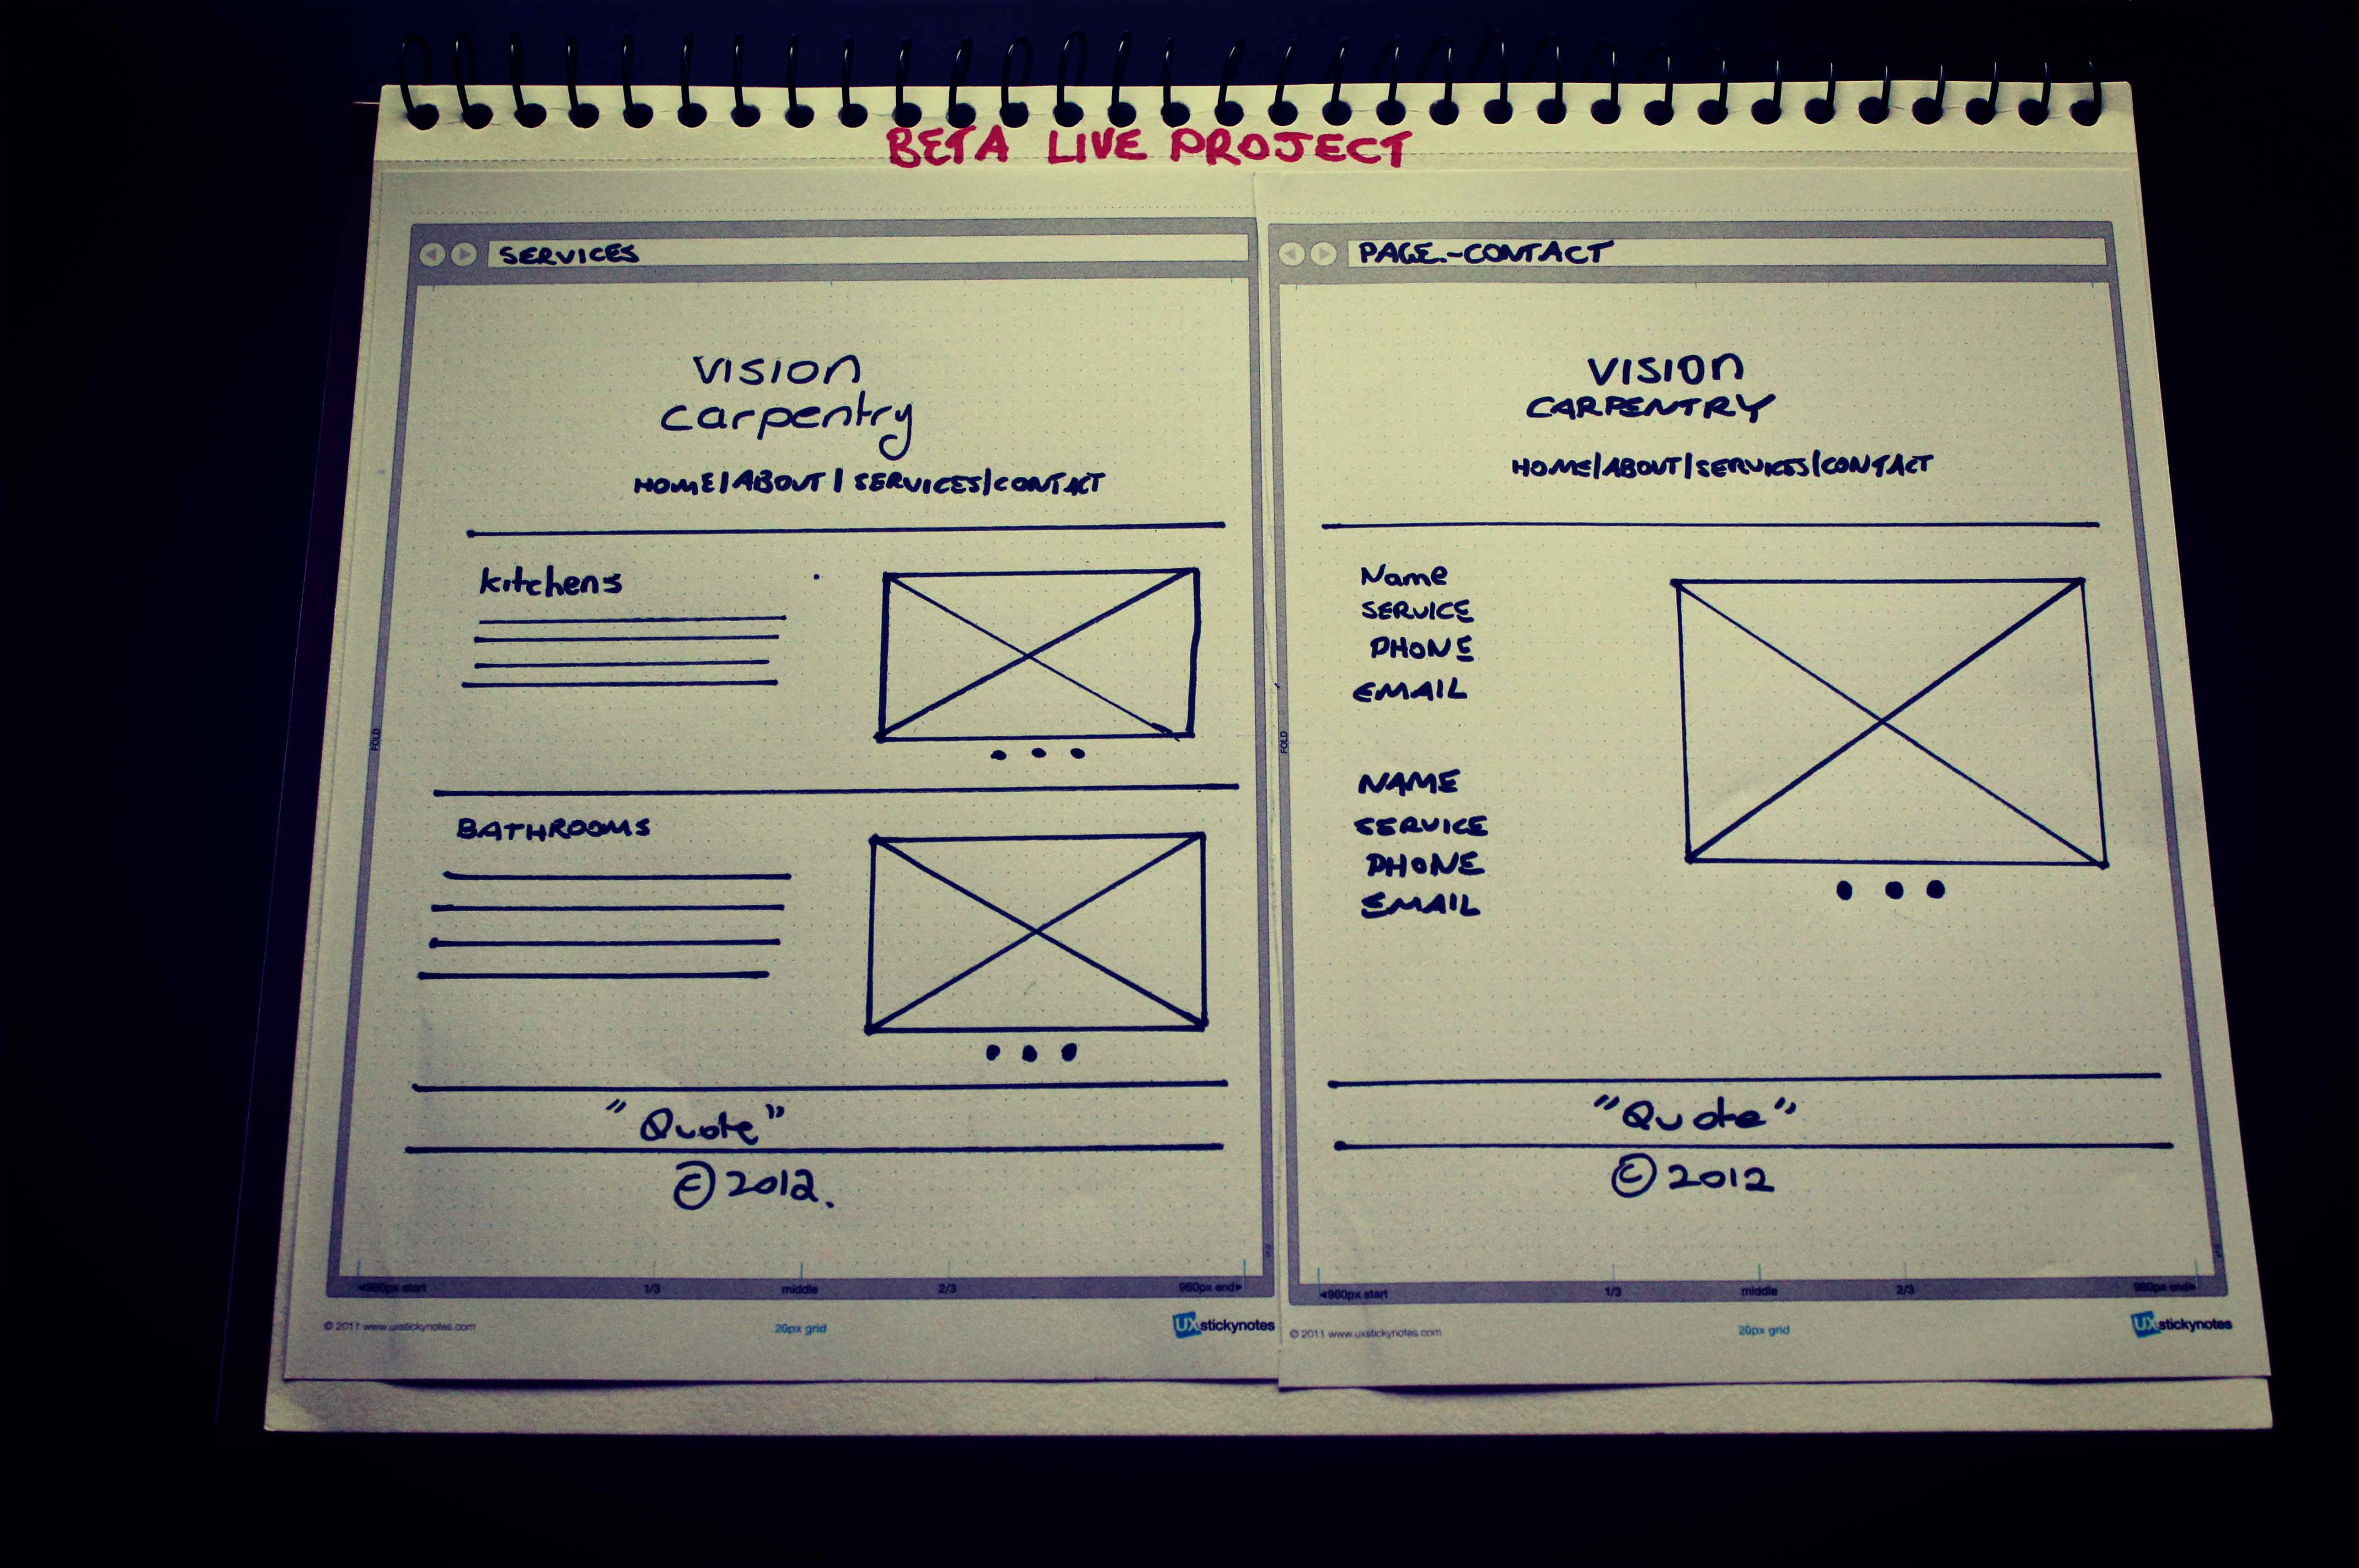 BETA LIVE PROJECT
SERVICES
vision
carpentry
HOME/ABOUT/SERVICES/CONTACT
kitchens
BATHROOMS
"Quote"
©2012.
FOLD
◄960px start 1/3 middle 2/3 960px end►
© 2011 www.uxstickynotes.com 20px grid UXstickynotes
PAGE.-CONTACT
VISION
CARPENTRY
HOME/ABOUT/SERVICES/CONTACT
Name
SERVICE
PHONE
EMAIL
NAME
SERVICE
PHONE
EMAIL
"Quote"
©2012
FOLD
◄960px start 1/3 middle 2/3 960px end►
© 2011 www.uxstickynotes.com 20px grid UXstickynotes